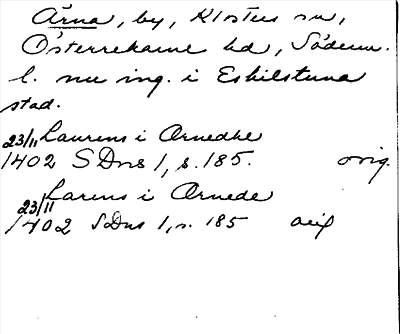 Ärna, by, Klosters sn,
Österrekarne hd, Söderm.
l. nu ing. i Eskilstuna
stad.
23/11 Laurens i Arnedhe
1402 SDns 1, s. 185. orig.
23/11 Larens i Arnede
1402 SDns 1, s. 185 orig